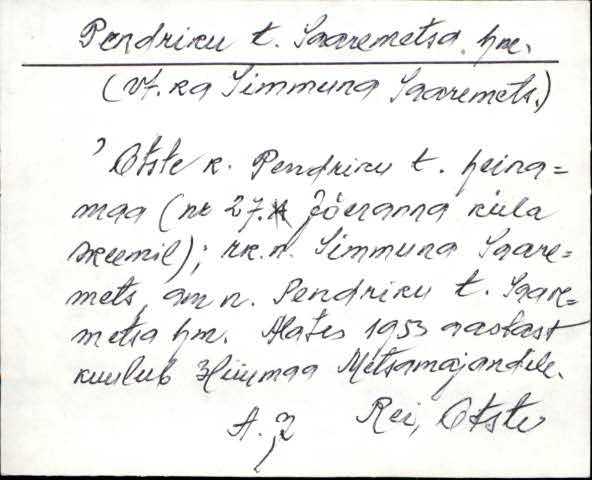 Pendriku t. Saaremetsa hm.
(vt. ka Simmuna Saaremets.)
' Otste k. Pendriku t. heina=
maa (nr 27. Jõeranna küla
skeemil); rk. n. Simmuna Saare=
mets, am n. Pendriku t. Saare=
metsa hm. Alates 1953 aastast
kuulub Hiiumaa Metsamajandile.
A. J Rei, Otste